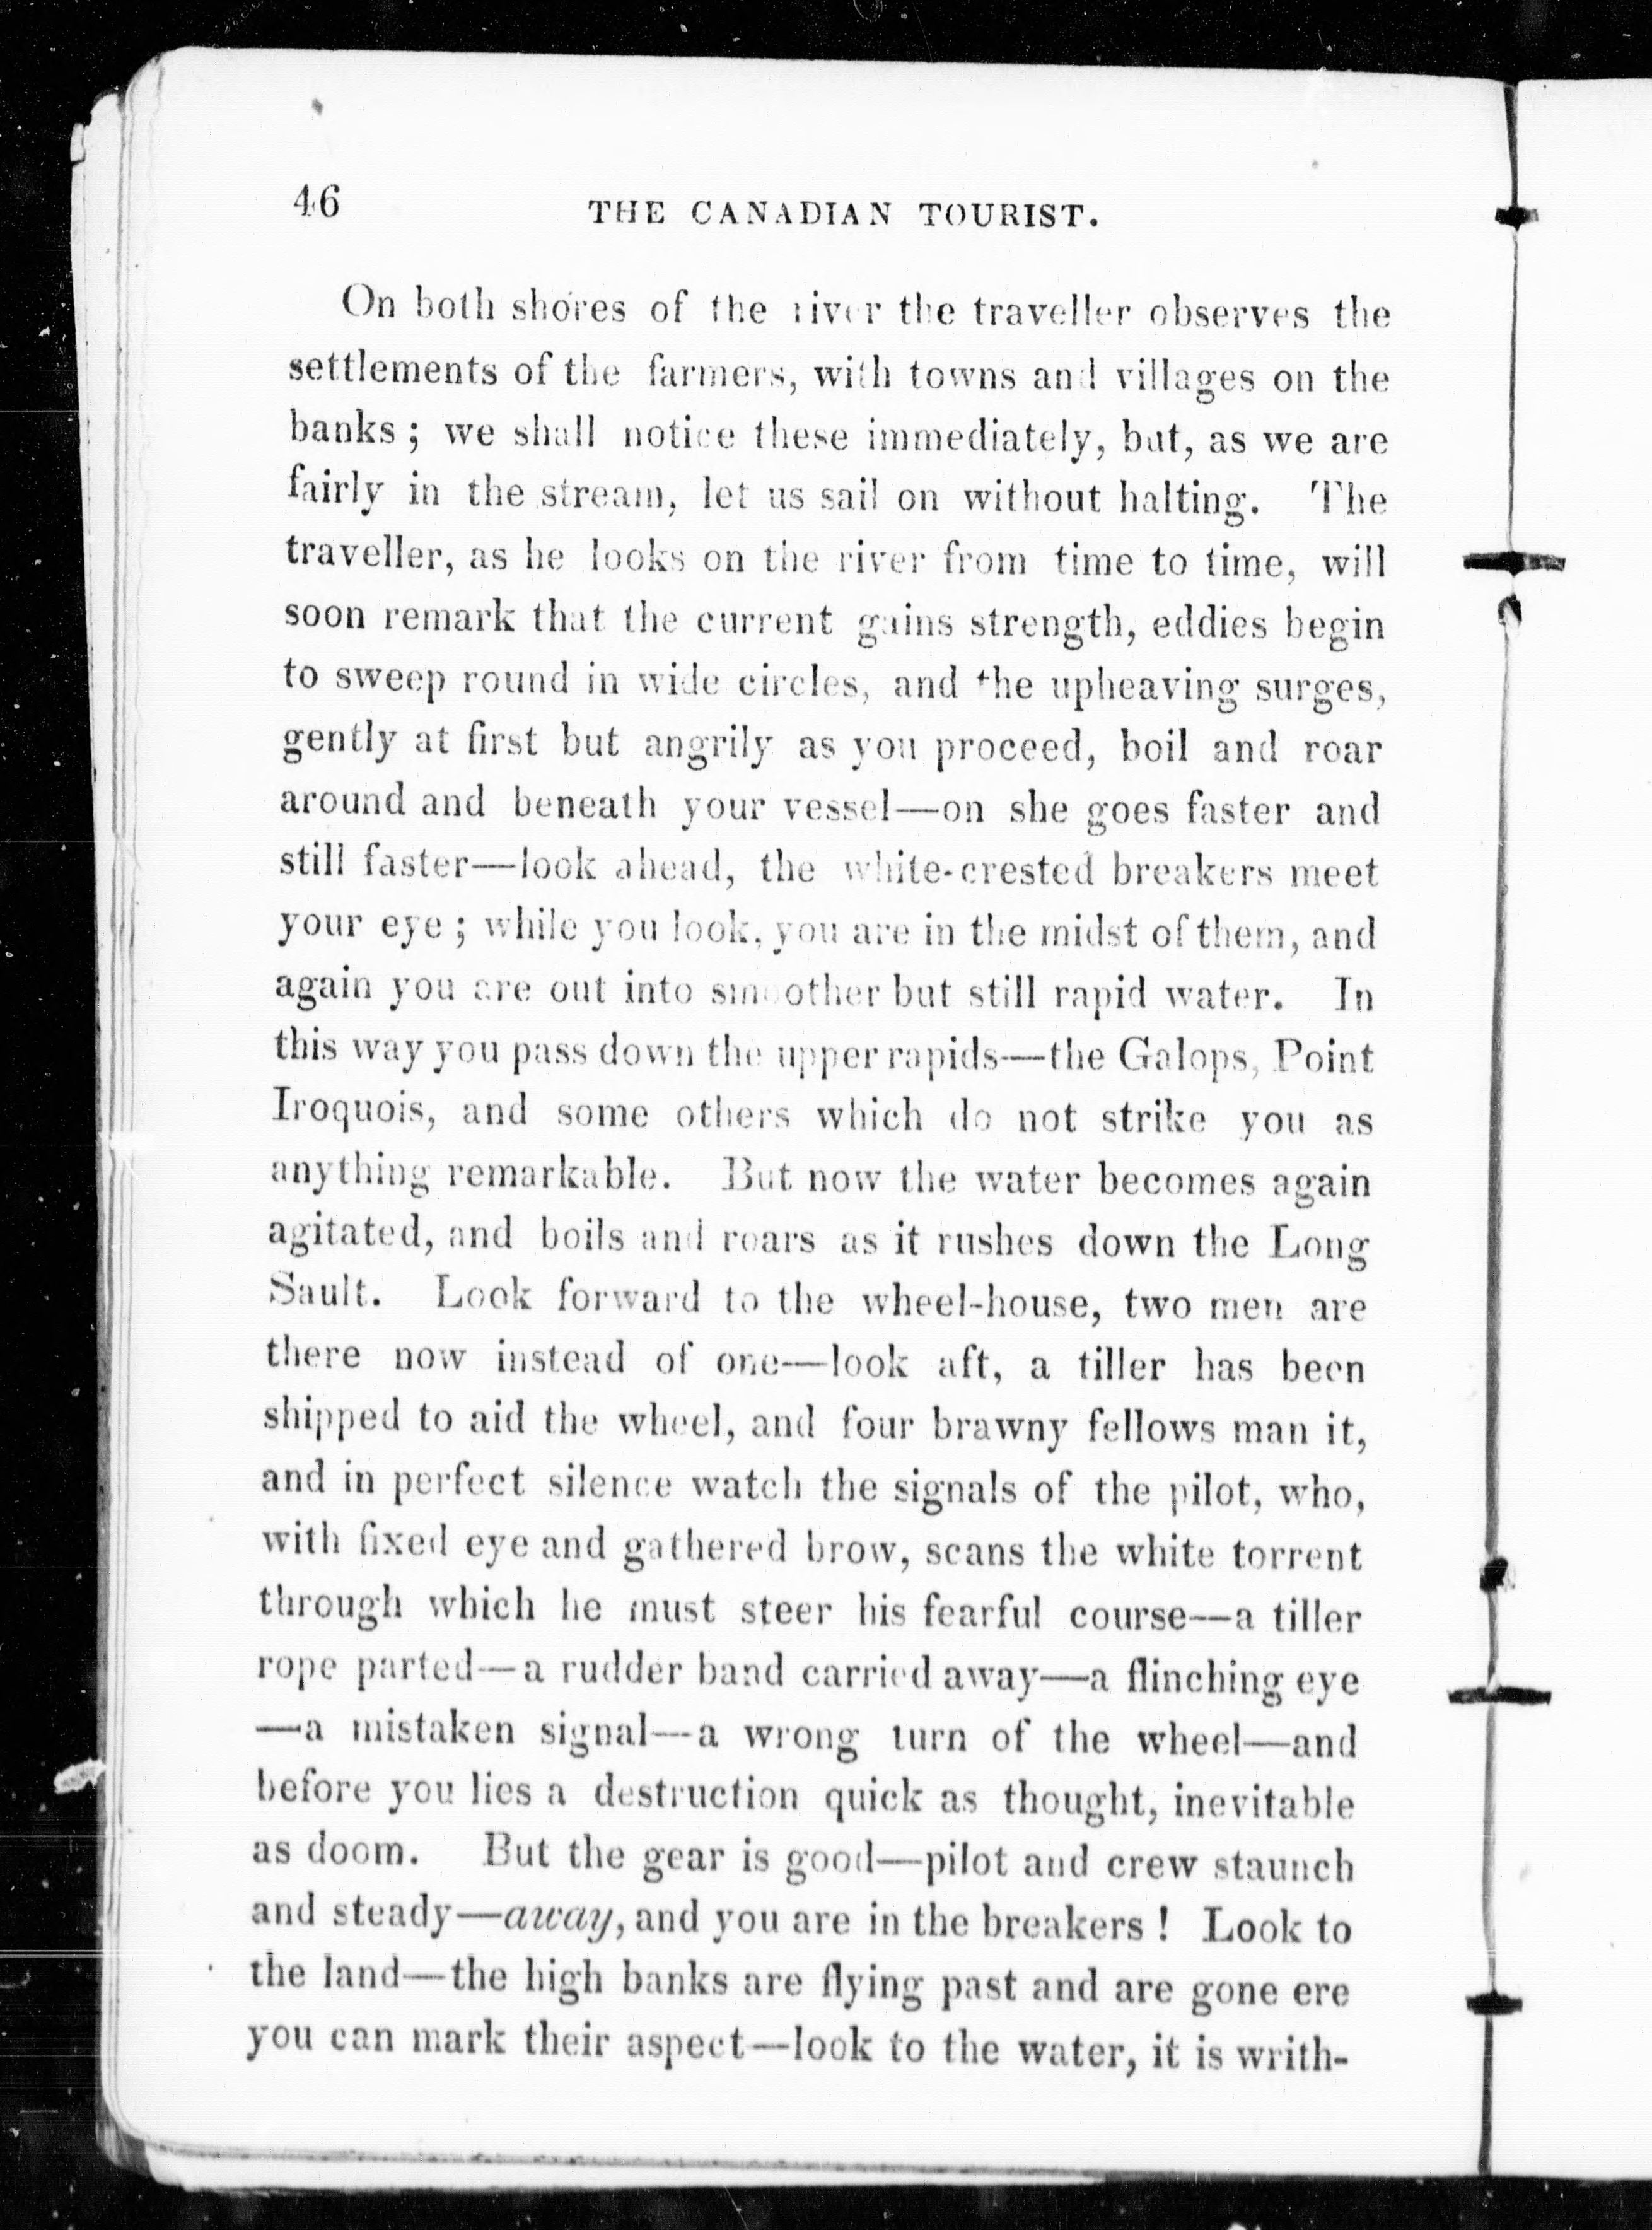 46
THE CANADIAN TOURIST.
On both shores of the river the traveller observes the
settlements of the farmers, with towns and villages on the
banks ; we shall notice these immediately, but, as we are
fairly in the stream, let us sail on without halting. The
traveller, as he looks on the river from time to time, will
soon remark that the current gains strength, eddies begin
to sweep round in wide circles, and the upheaving surges,
gently at first but angrily as you proceed, boil and roar
around and beneath your vessel—on she goes faster and
still faster—look ahead, the white-crested breakers meet
your eye ; while you look, you are in the midst of them, and
again you are out into smoother but still rapid water. In
this way you pass down the upper rapids—the Galops, Point
Iroquois, and some others which do not strike you as
anything remarkable. But now the water becomes again
agitated, and boils and roars as it rushes down the Long
Sault. Look forward to the wheel-house, two men are
there now instead of one—look aft, a tiller has been
shipped to aid the wheel, and four brawny fellows man it,
and in perfect silence watch the signals of the pilot, who,
with fixed eye and gathered brow, scans the white torrent
through which he must steer his fearful course—a tiller
rope parted—a rudder band carried away—a flinching eye
—a mistaken signal—a wrong turn of the wheel—and
before you lies a destruction quick as thought, inevitable
as doom. But the gear is good—pilot and crew staunch
and steady—away, and you are in the breakers ! Look to
the land—the high banks are flying past and are gone ere
you can mark their aspect—look to the water, it is writh-